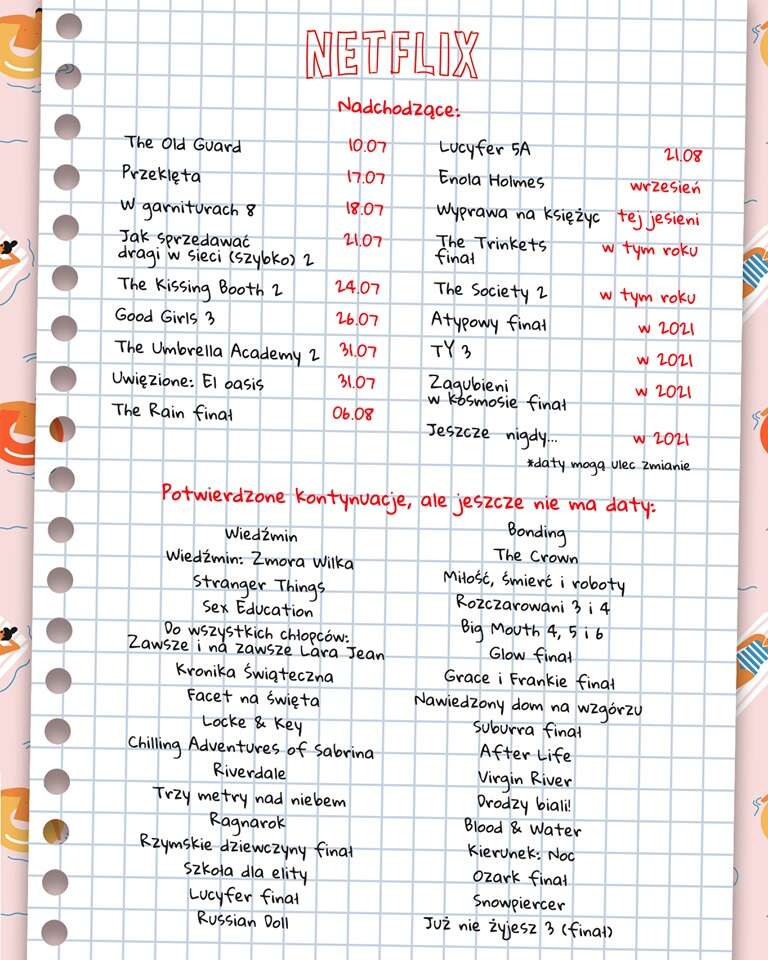 NETFLIX
Nadchodzące:
The Old Guard 10.07
Przeklęta 17.07
W garniturach 8 18.07
Jak sprzedawać
dragi w sieci (szybko) 2 21.07
The Kissing Booth 2 24.07
Good Girls 3 26.07
The Umbrella Academy 2 31.07
Uwięzione: El oasis 31.07
The Rain finał 06.08
Lucyfer 5A 21.08
Enola Holmes wrzesień
Wyprawa na księżyc tej jesieni
The Trinkets
finał w tym roku
The Society 2 w tym roku
Atypowy finał w 2021
TY 3 w 2021
Zagubieni
w kosmosie finał w 2021
Jeszcze nigdy... w 2021
*daty mogą ulec zmianie
Potwierdzone kontynuacje, ale jeszcze nie ma daty:
Wiedźmin
Wiedźmin: Zmora Wilka
Stranger Things
Sex Education
Do wszystkich chłopców:
Zawsze i na zawsze Lara Jean
Kronika Świąteczna
Facet na święta
Locke & Key
Chilling Adventures of Sabrina
Riverdale
Trzy metry nad niebem
Ragnarok
Rzymskie dziewczyny finał
Szkoła dla elity
Lucyfer finał
Russian Doll
Bonding
The Crown
Miłość, śmierć i roboty
Rozczarowani 3 i 4
Big Mouth 4, 5 i 6
Glow finał
Grace i Frankie finał
Nawiedzony dom na wzgórzu
Suburra finał
After Life
Virgin River
Drodzy biali!
Blood & Water
Kierunek: Noc
Ozark finał
Snowpiercer
Już nie żyjesz 3 (finał)